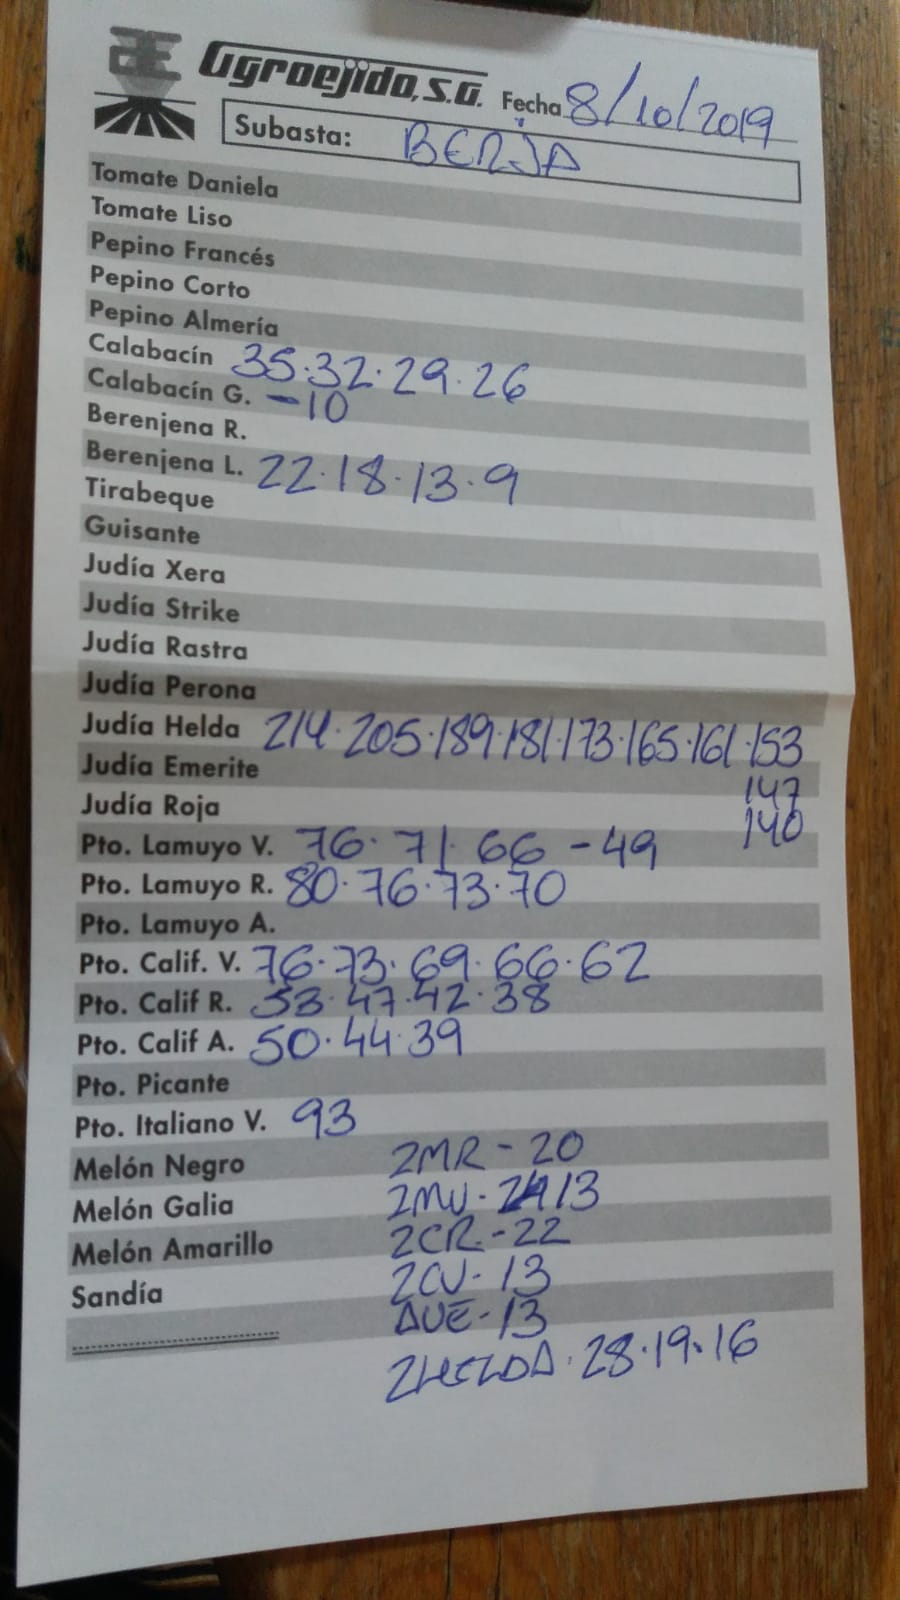 Agroejido, S.A. Fecha 8/10/2019
Subasta: BERJA
Tomate Daniela
Tomate Liso
Pepino Francés
Pepino Corto
Pepino Almería
Calabacín 35.32.29.26
Calabacín G. -10
Berenjena R.
Berenjena L. 22.18.13.9
Tirabeque
Guisante
Judía Xera
Judía Strike
Judía Rastra
Judía Perona
Judía Helda 214.205.189.181.173.165.161.153
Judía Emerite 147
Judía Roja 140
Pto. Lamuyo V. 76.71.66 -49
Pto. Lamuyo R. 80.76.73.70
Pto. Lamuyo A.
Pto. Calif. V. 76.73.69.66.62
Pto. Calif R. 53.47.42.38
Pto. Calif A. 50.44.39
Pto. Picante
Pto. Italiano V. 93
Melón Negro 2MR-20
Melón Galia 2MV- 13
Melón Amarillo 2CR.-22
Sandía 2CV-13
AVE-13
2HELDA.28.19.16